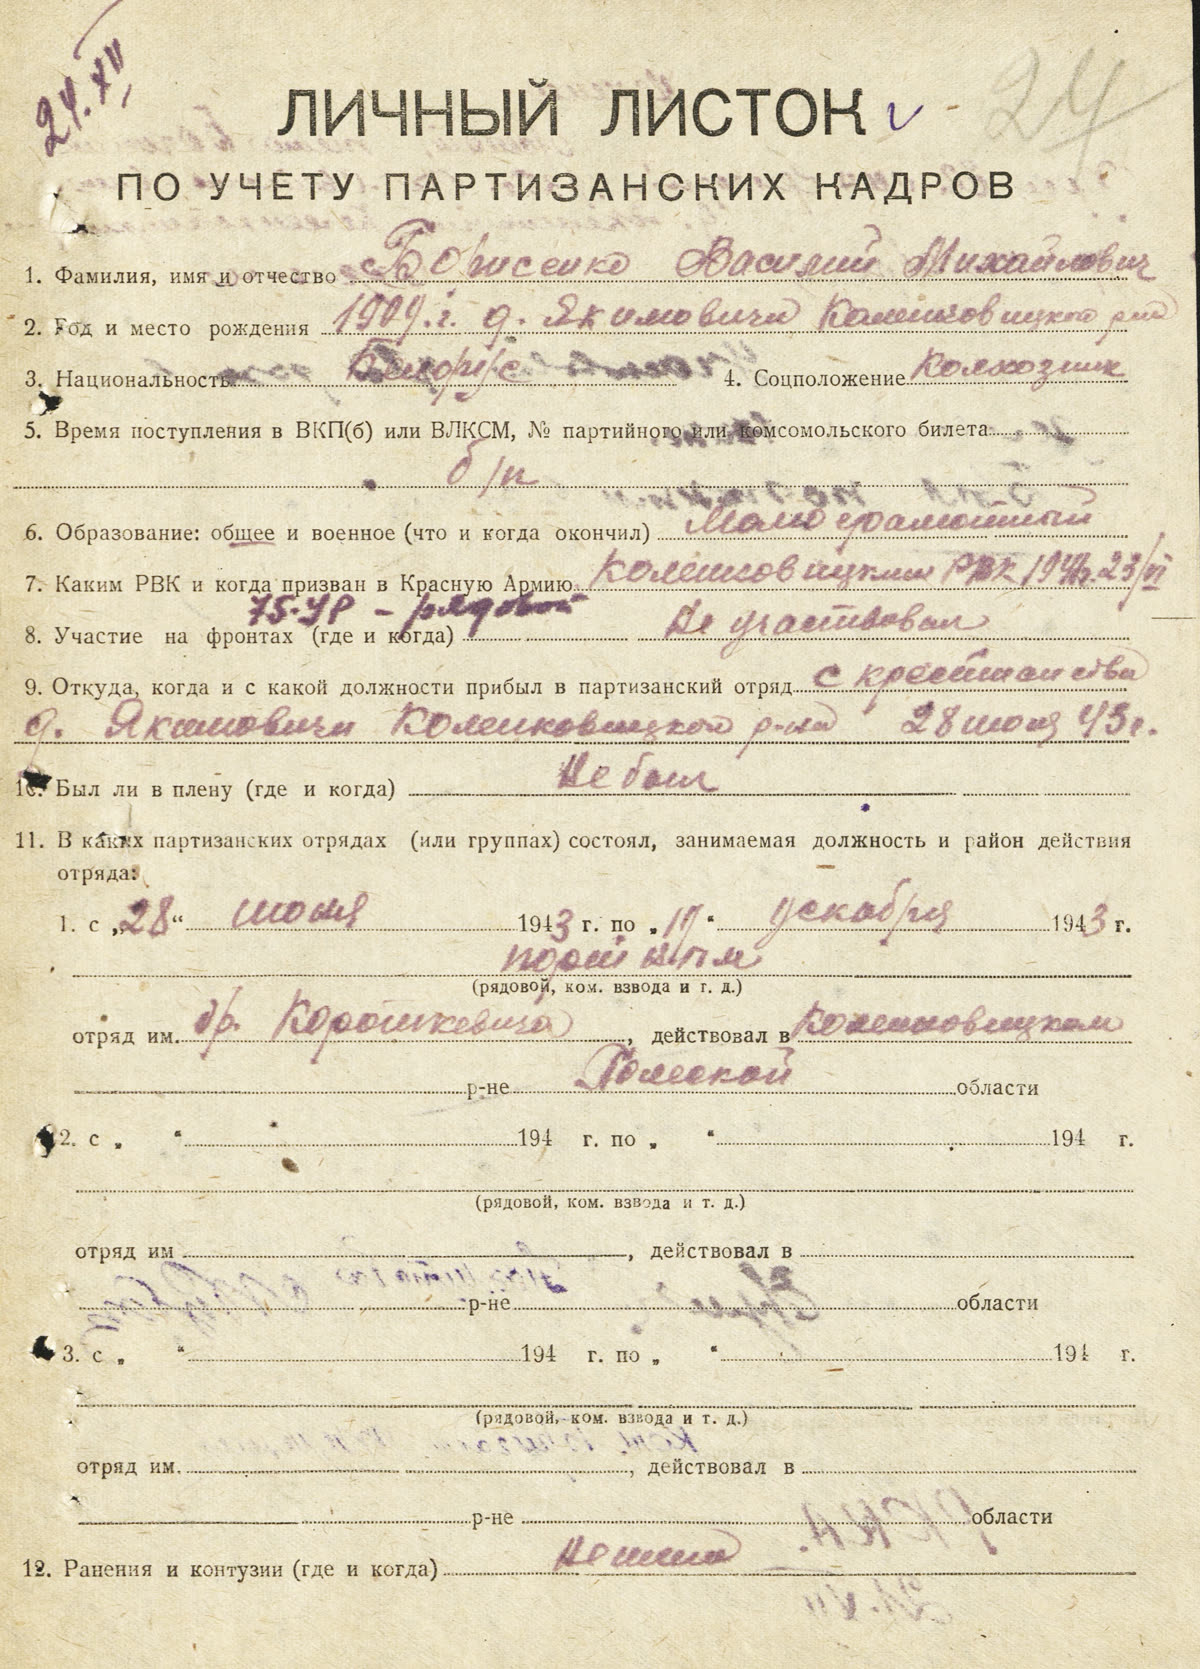 24.XII
24
ЛИЧНЫЙ ЛИСТОК
ПО УЧЕТУ ПАРТИЗАНСКИХ КАДРОВ
1. Фамилия, имя и отчество Борисенко Василий Михайлович
2. Год и место рождения 1909 г. д. Якимовичи Каленковицкого р-на
3. Национальность Белорус 4. Соцположение Колхозник
5. Время поступления в ВКП(б) или ВЛКСМ, № партийного или комсомольского билета
б/п
6. Образование: общее и военное (что и когда окончил) Малограмотный
7. Каким РВК и когда призван в Красную Армию Коленковицким РВК 1941г. 23/VI
75-УР - рядовой
8. Участие на фронтах (где и когда) Не участвовал
9. Откуда, когда и с какой должности прибыл в партизанский отряд с крестьянства
д. Якимовичи Коленковицкого р-на 28 июня 43 г.
10. Был ли в плену (где и когда) Не был
11. В каких партизанских отрядах (или группах) состоял, занимаемая должность и район действия
отряда:
1. с „28“ июня 1943 г. по „17“ декабря 1943 г.
(рядовой, ком. взвода и г. д.)
отряд им. бр. Короткевича, действовал в Коленковицком
р-не Полеской области
2. с „ “ 194 г. по „ “ 194 г.
(рядовой, ком. взвода и т. д.)
отряд им , действовал в
р-не области
3. с „ “ 194 г. по „ “ 194 г.
(рядовой, ком. взвода и т. д.)
отряд им. , действовал в
р-не области
12. Ранения и контузии (где и когда) Не имел